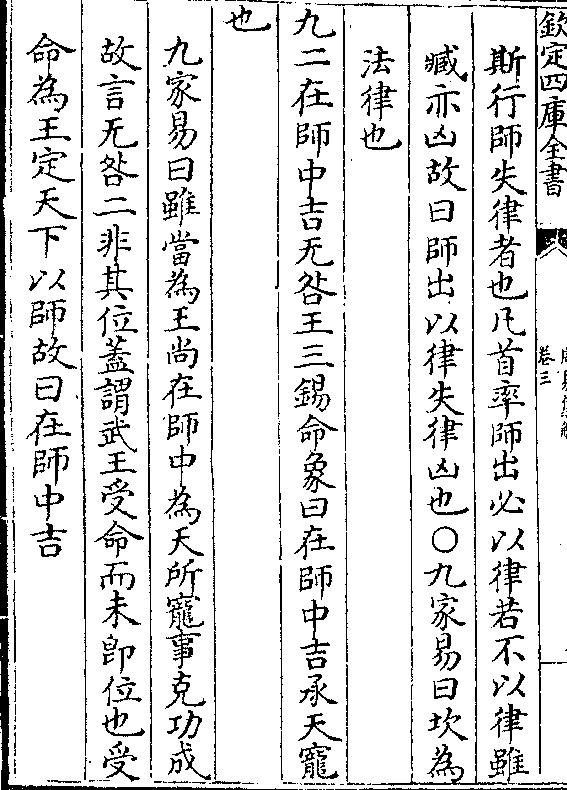 欽定四庫全書
卷三
斯行師失律者也凡首率師出必以律若不以律雖
臧亦凶故曰師出以律失律凶也○九家易曰坎為
法律也
九二在師中吉无咎王三錫命象曰在師中吉承天寵
也
九家易曰雖當為王尚在師中為天所寵事克功成
故言无咎二非其位蓋謂武王受命而未即位也受
命為王定天下以師故曰在師中吉